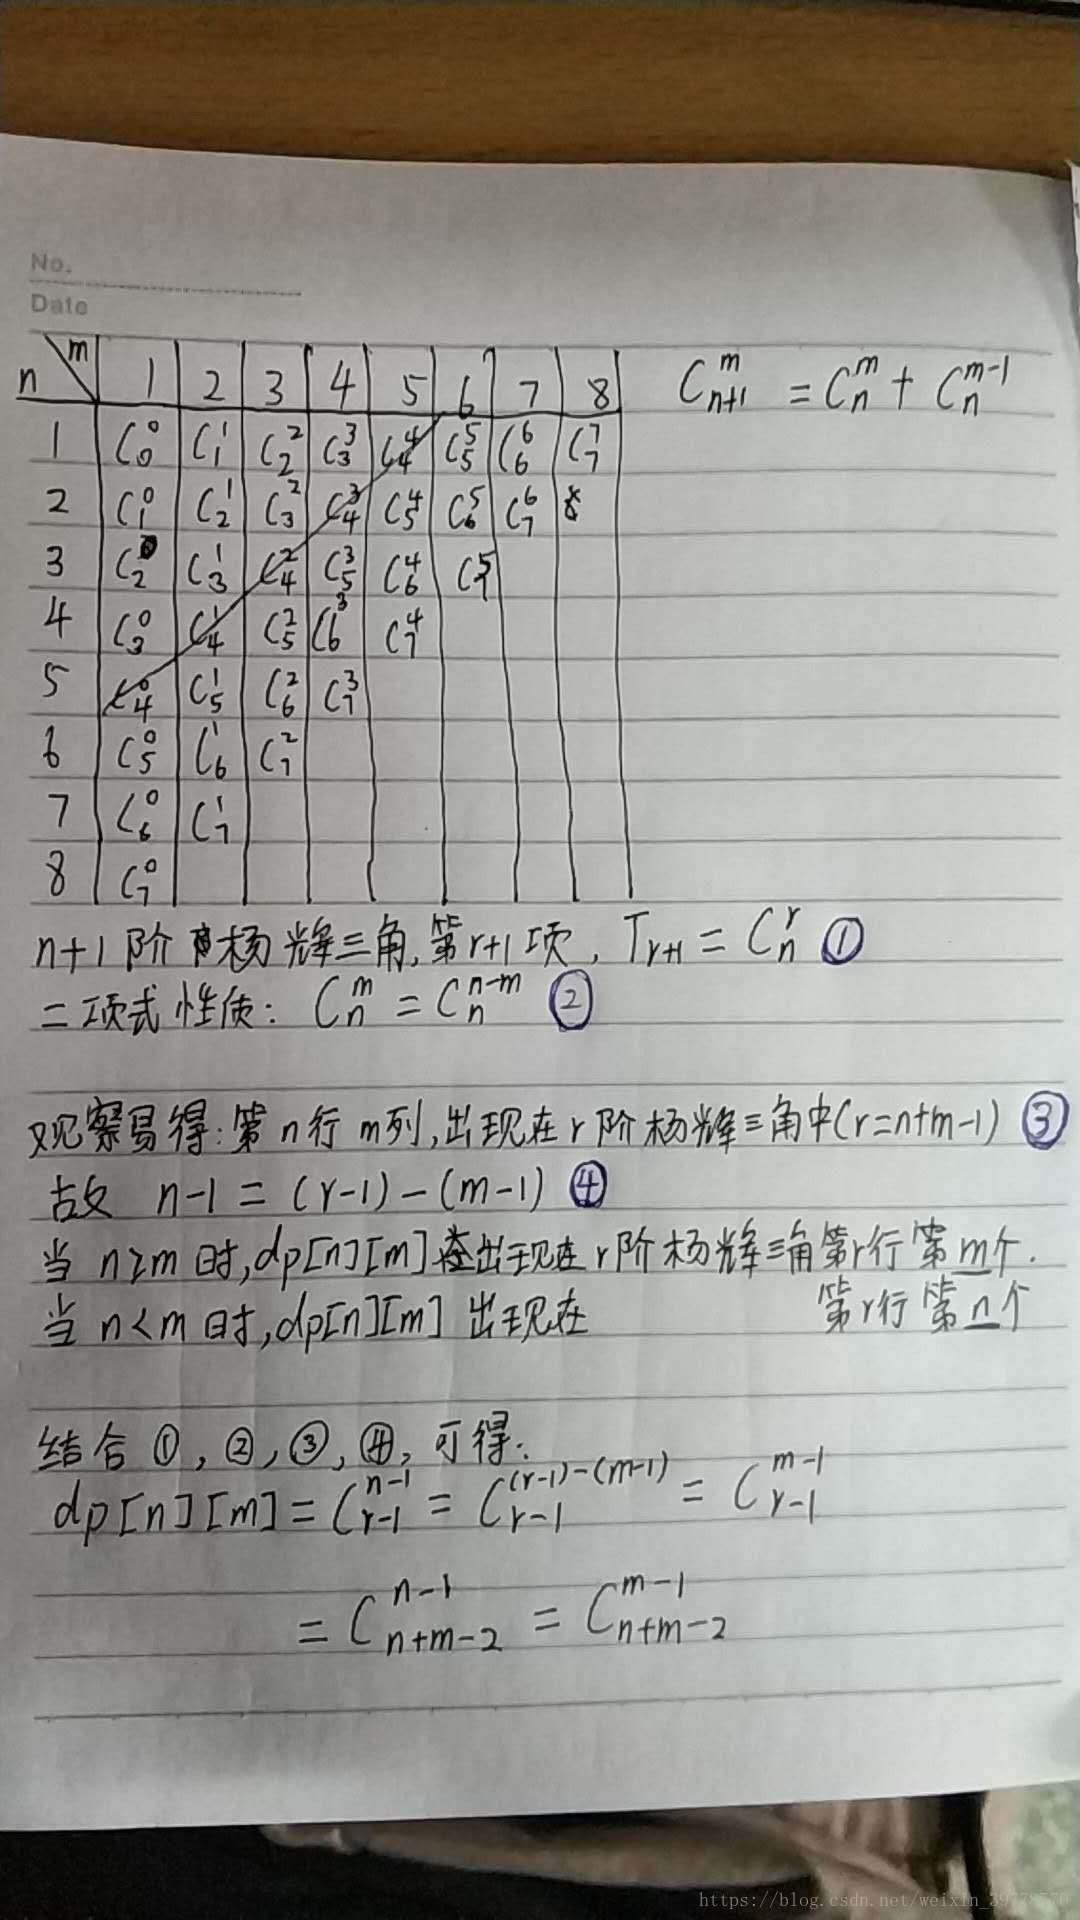 No.
Date
n\m 1 2 3 4 5 6 7 8 C_{n+1}^{m} = C_n^m + C_n^{m-1}
1 C_0^0 C_1^1 C_2^2 C_3^3 C_4^4 C_5^5 C_6^6 C_7^7
2 C_1^0 C_2^1 C_3^2 C_4^3 C_5^4 C_6^5 C_7^6
3 C_2^0 C_3^1 C_4^2 C_5^3 C_6^4 C_7^5
4 C_3^0 C_4^1 C_5^2 C_6^3 C_7^4
5 C_4^0 C_5^1 C_6^2 C_7^3
6 C_5^0 C_6^1 C_7^2
7 C_6^0 C_7^1
8 C_7^0
n+1 阶杨辉三角,第r+1项, T_{r+1} = C_n^r ①
二项式性质: C_n^m = C_n^{n-m} ②
观察易得:第n行m列,出现在r阶杨辉三角中(r=n+m-1) ③
故 n-1 = (r-1)-(m-1) ④
当 n≥m 时,dp[n][m]出现在r阶杨辉三角第r行第m个.
当 n<m 时,dp[n][m] 出现在 第r行第n个
结合 ①,②,③,④,可得:
dp[n][m] = C_{r-1}^{n-1} = C_{r-1}^{(r-1)-(m-1)} = C_{r-1}^{m-1}
= C_{n+m-2}^{n-1} = C_{n+m-2}^{m-1}
https://blog.csdn.net/weixin_39778570